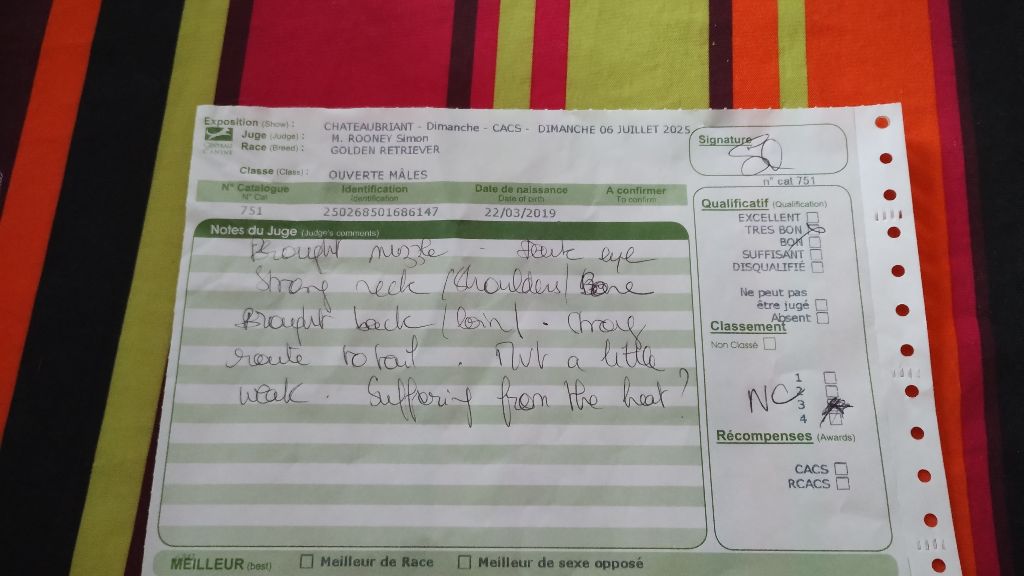 Exposition (Show) : CHATEAUBRIANT - Dimanche - CACS - DIMANCHE 06 JUILLET 2025
Juge (Judge) : M. ROONEY Simon
Race (Breed) : GOLDEN RETRIEVER
Classe (Class) : OUVERTE MÂLES
Signature
n° cat 751
N° Catalogue Identification Date de naissance A confirmer
N° Cat Identification Date of birth To confirm
751 250268501686147 22/03/2019
Notes du Juge (Judge's comments)
Brought muzzle - eye
Strong neck / Shoulders / Bone
Brought back / loin / . strong
route to tail . Mvt a little
weak . Suffering from the heat ?
Qualificatif (Qualification)
EXCELLENT
TRES BON
BON
SUFFISANT
DISQUALIFIÉ
Ne peut pas
être jugé
Absent
Classement
Non Classé
1
2
3
4
NC
Récompenses (Awards)
CACS
RCACS
MEILLEUR (best) Meilleur de Race Meilleur de sexe opposé